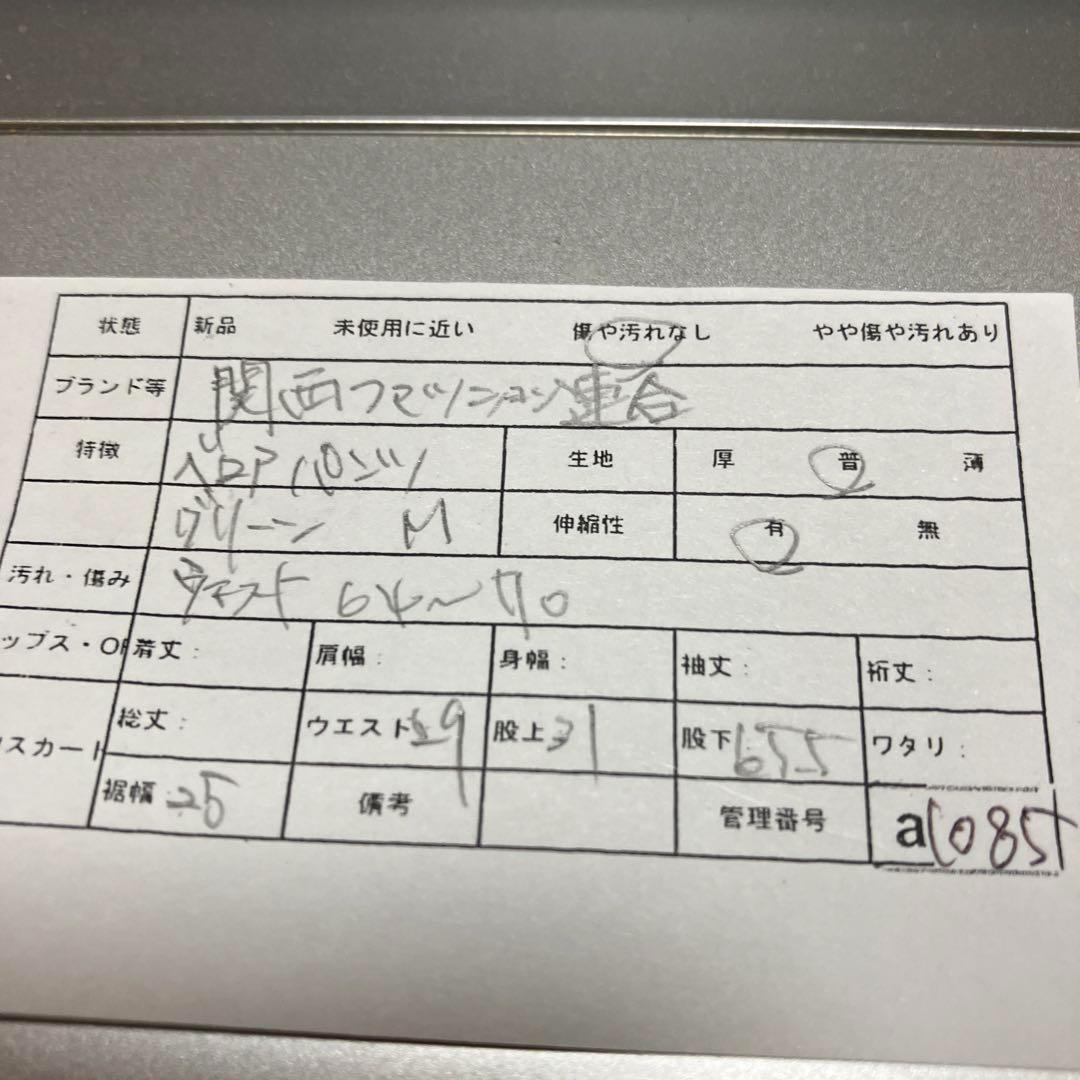 状態 新品 未使用に近い 傷や汚れなし やや傷や汚れあり
ブランド等 関西ファッション連合
特徴 ベロアパンツ 生地 厚 普 薄
グリーン M 伸縮性 有 無
汚れ・傷み ウエスト 64〜70
ップス・OP 着丈: 肩幅: 身幅: 袖丈: 裄丈:
スカート 総丈: ウエスト 股上 31 股下 65.5 ワタリ:
裾幅: 25 備考 管理番号 a1085